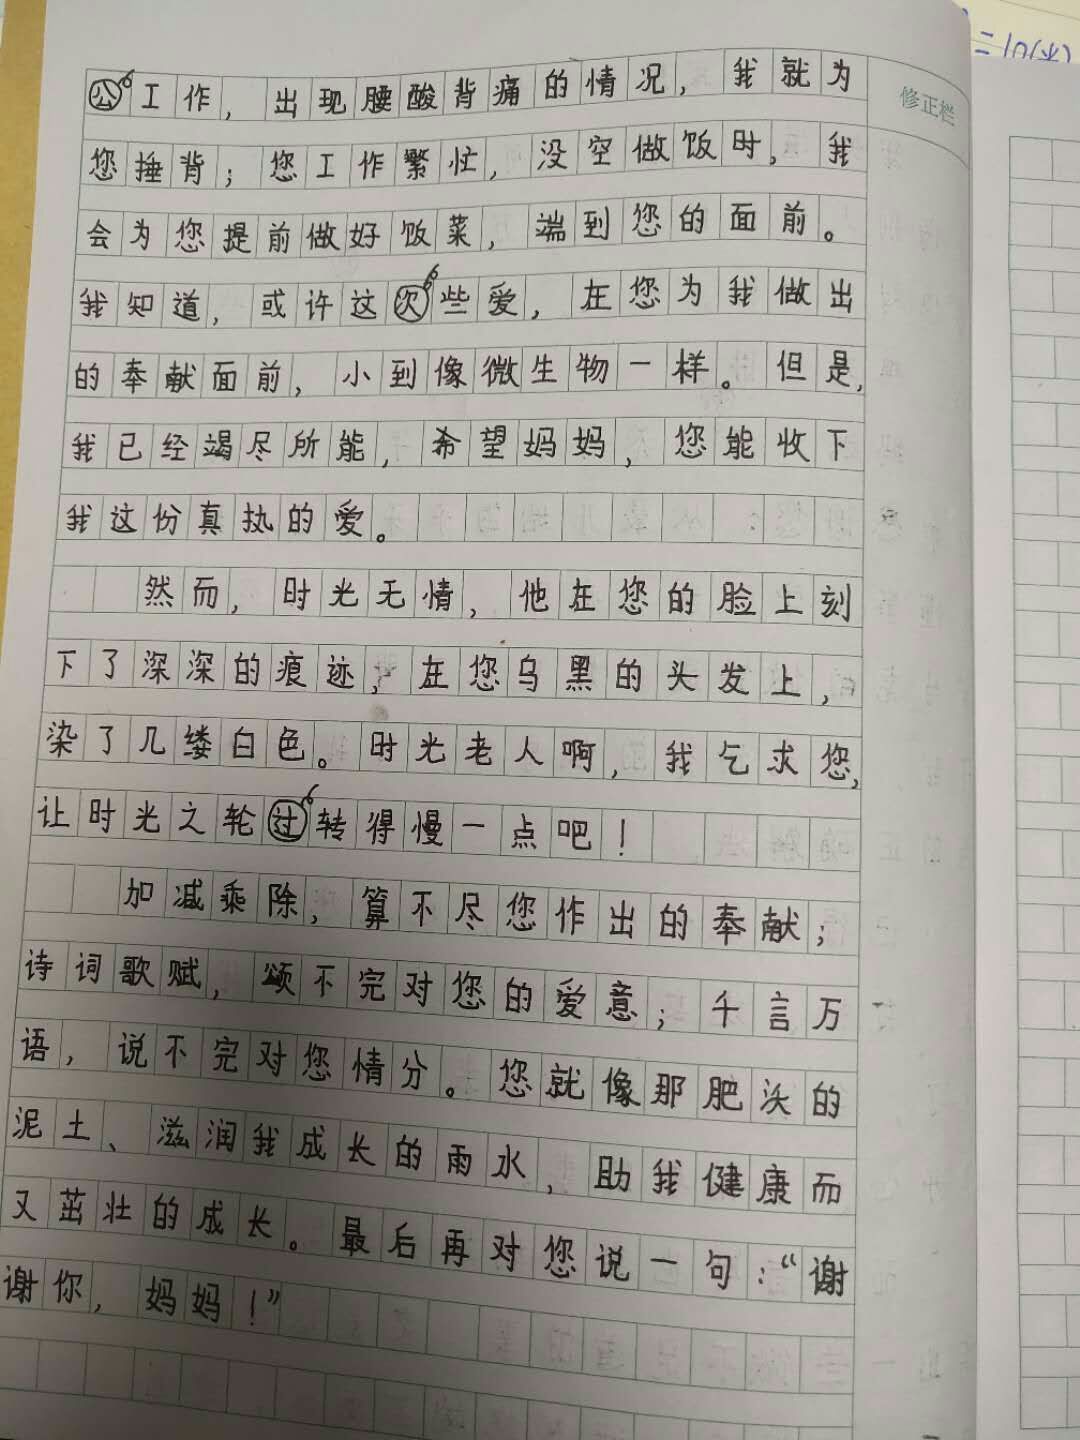 二10(水)
修正栏
公工作，出现腰酸背痛的情况，我就为
您捶背；您工作繁忙，没空做饭时，我
会为您提前做好饭菜，端到您的面前。
我知道，或许这次些爱，在您为我做出
的奉献面前，小到像微生物一样。但是，
我已经竭尽所能，希望妈妈，您能收下
我这份真执的爱。
然而，时光无情，他在您的脸上刻
下了深深的痕迹，在您乌黑的头发上，
染了几缕白色。时光老人啊，我乞求您，
让时光之轮过转得慢一点吧！
加减乘除，算不尽您作出的奉献；
诗词歌赋，颂不完对您的爱意；千言万
语，说不完对您情分。您就像那肥沃的
泥土、滋润我成长的雨水，助我健康而
又茁壮的成长。最后再对您说一句：“谢
谢你，妈妈！”